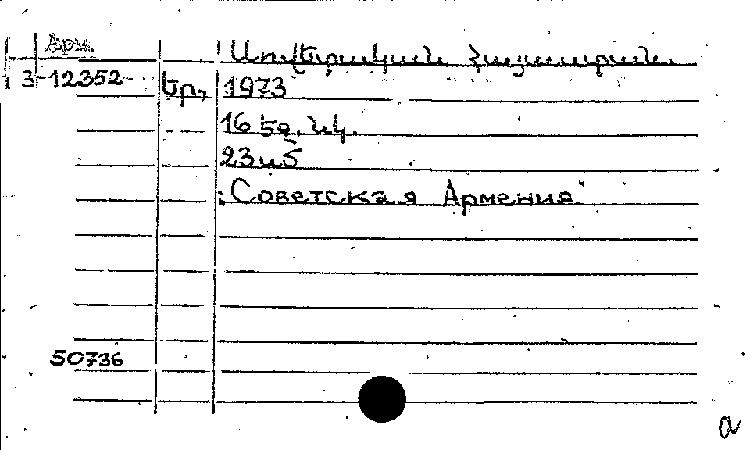 Арм.
Սովետական Հայաստան.
3-12352
Եր., 1973
16 էջ. նկ.
23 սմ
"Советская Армения"
50736
a